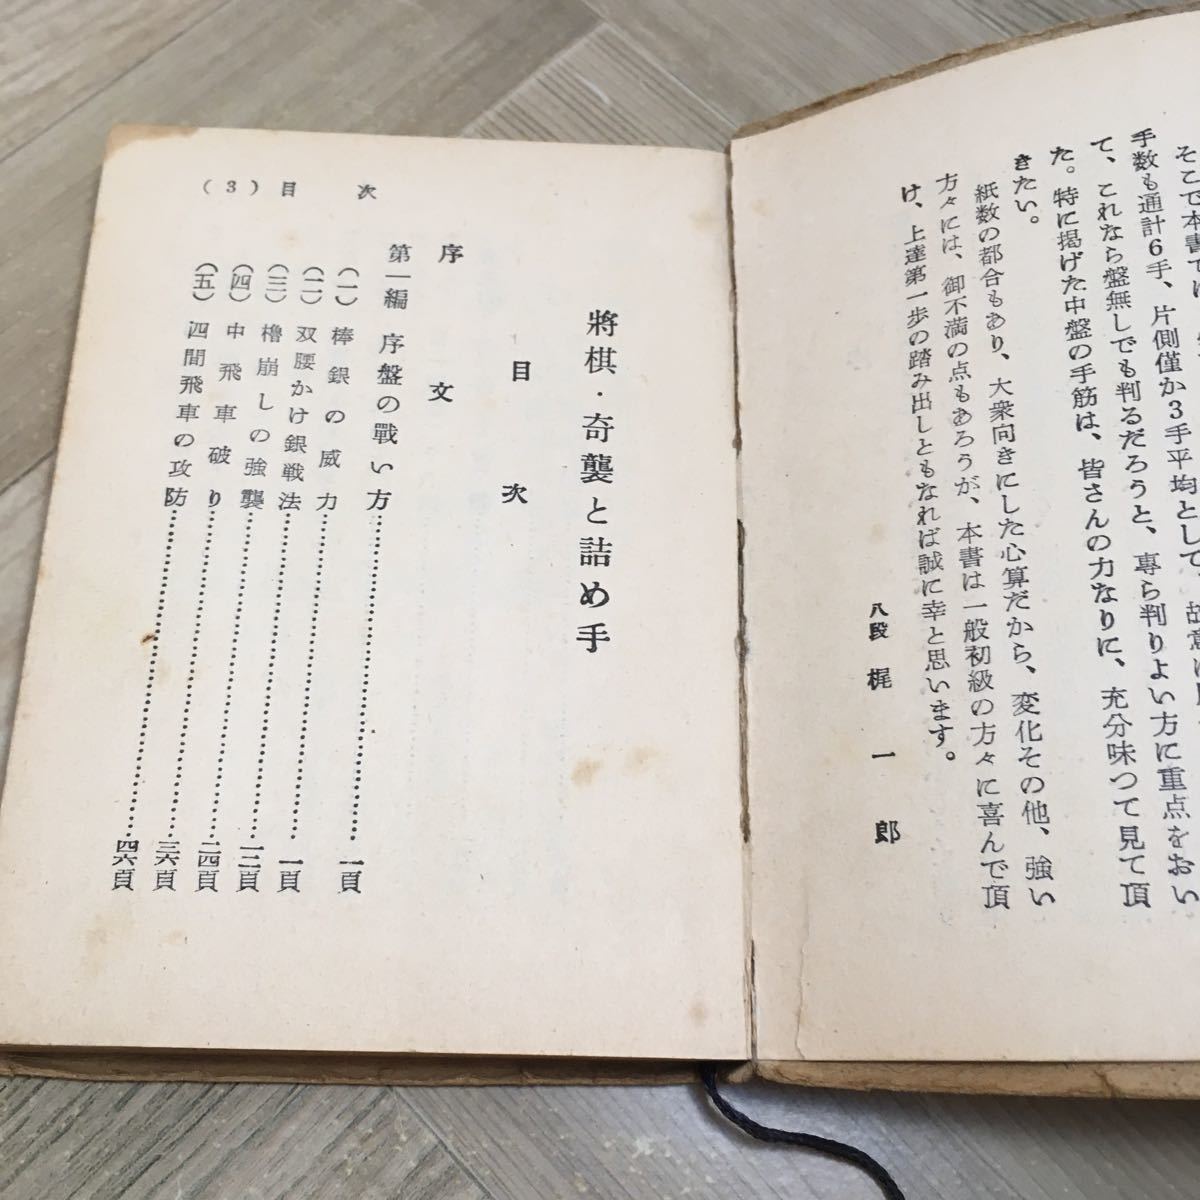 そこで本書では
手数も通計6手、片側僅か3手平均として、故意に
て、これなら盤無しでも判るだろうと、専ら判りよい方に重点をおい
た。特に掲げた中盤の手筋は、皆さんの力なりに、充分味つて見て頂
きたい。
紙数の都合もあり、大衆向きにした心算だから、変化その他、強い
方々には、御不満の点もあろうが、本書は一般初級の方々に喜んで頂
け、上達第一歩の踏み出しともなれば誠に幸と思います。
八段 梶一郎
(3) 目次
將棋・奇襲と詰め手
目次
序文
第一編 序盤の戰い方……一頁
(一) 棒銀の威力……一頁
(二) 双腰かけ銀戦法……一二頁
(三) 櫓崩しの強襲……二四頁
(四) 中飛車破り……三六頁
(五) 四間飛車の攻防……四六頁